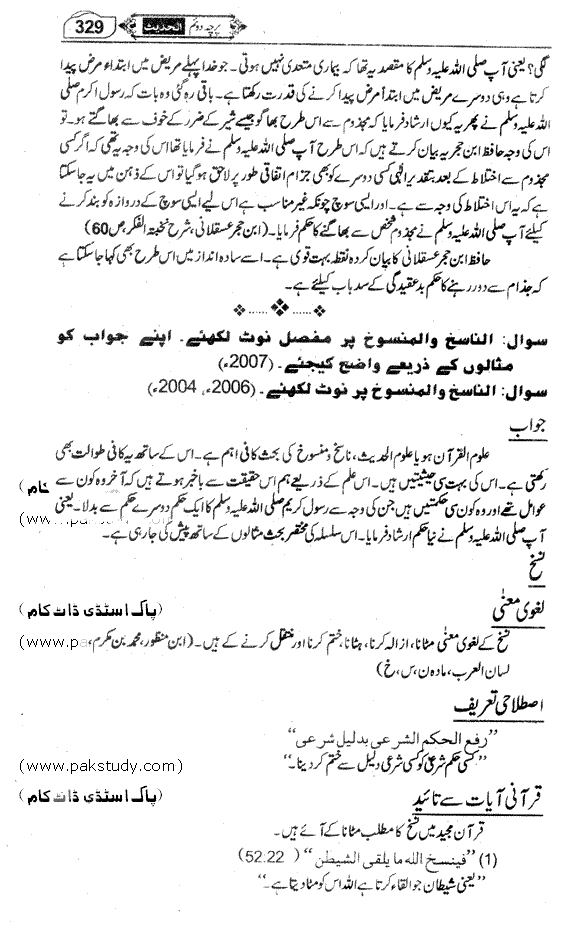 پرچہ دوئم الحدیث 329
لگی؟ یعنی آپ صلی اللہ علیہ وسلم کا مقصد یہ تھا کہ بیماری متعدی نہیں ہوتی۔ جو خدا پہلے مریض میں ابتداء مرض پیدا
کرتا ہے وہی دوسرے مریض میں ابتدأ مرض پیدا کرنے کی قدرت رکھتا ہے۔ باقی رہ گئی وہ بات کہ رسول اکرم صلی
اللہ علیہ وسلم نے پھر یہ کیوں ارشاد فرمایا کہ مجذوم سے اس طرح بھاگو جیسے شیر کے ضرر کے خوف سے بھاگتے ہو۔ تو
اس کی وجہ حافظ ابن حجر یہ بیان کرتے ہیں کہ اس طرح آپ صلی اللہ علیہ وسلم نے فرمایا تھا اس کی وجہ یہ تھی کہ اگر کسی
مجذوم سے اختلاط کے بعد بتقدیر الٰہی کسی دوسرے کو بھی جزام اتفاقی طور پر لاحق ہو گیا تو اس کے ذہن میں یہ جا سکتا
ہے کہ یہ اس اختلاط کی وجہ سے ہے۔ اور ایسی سوچ چونکہ غیر مناسب ہے اس لیے ایسی سوچ کے دروازہ کو بند کرنے
کیلئے آپ صلی اللہ علیہ وسلم نے مجذوم شخص سے بھاگنے کا حکم فرمایا۔ (ابن حجر عسقلانی، شرح نخبتہ الفکر، ص 60)
حافظ ابن حجر عسقلانی کا بیان کردہ نقطہ بہت قوی ہے۔ اسے سادہ انداز میں اس طرح بھی کہا جا سکتا ہے
کہ جذام سے دور رہنے کا حکم بدعقیدگی کے سدباب کیلئے ہے۔
سوال: الناسخ والمنسوخ پر مفصل نوٹ لکھئے۔ اپنے جواب کو
مثالوں کے ذریعے واضح کیجئے۔ (2007ء)
سوال: الناسخ والمنسوخ پر نوٹ لکھئے۔ (2006ء، 2004ء)
جواب
علوم القرآن ہو یا علوم الحدیث، ناسخ و منسوخ کی بحث کافی اہم ہے۔ اس کے ساتھ یہ کافی طوالت بھی
رکھتی ہے۔ اس کی بہت سی حیثیتیں ہیں۔ اس علم کے ذریعے ہم اس حقیقت سے باخبر ہوتے ہیں کہ آخر وہ کون سے
کام)
عوامل تھے اور وہ کون سی حکمتیں ہیں جن کی وجہ سے رسول کریم صلی اللہ علیہ وسلم کا ایک حکم دوسرے حکم سے بدلا۔ یعنی
(www.pak
آپ صلی اللہ علیہ وسلم نے نیا حکم ارشاد فرمایا۔ اس سلسلہ کی مختصر بحث مثالوں کے ساتھ پیش کی جا رہی ہے۔
نسخ
لغوی معنٰی
(پاک اسٹڈی ڈاٹ کام)
نسخ کے لغوی معنٰی مٹانا، ازالہ کرنا، ہٹانا، ختم کرنا اور منتقل کرنے کے ہیں۔ (ابن منظور، محمد بن مکرم،
(www.pa
لسان العرب، مادہ ن، س، خ)
اصطلاحی تعریف
”رفع الحکم الشرعی بدلیل شرعی“
”کسی حکم شرعی کو کسی شرعی دلیل سے ختم کر دینا۔“
(www.pakstudy.com)
قرآنی آیات سے تائید
(پاک اسٹڈی ڈاٹ کام)
قرآن مجید میں نسخ کا مطلب مٹانا کے آئے ہیں۔
(1) ”فینسخ الله ما یلقی الشیطن“ (52.22)
”یعنی شیطان جو القاء کرتا ہے اللہ اس کو مٹا دیتا ہے۔“